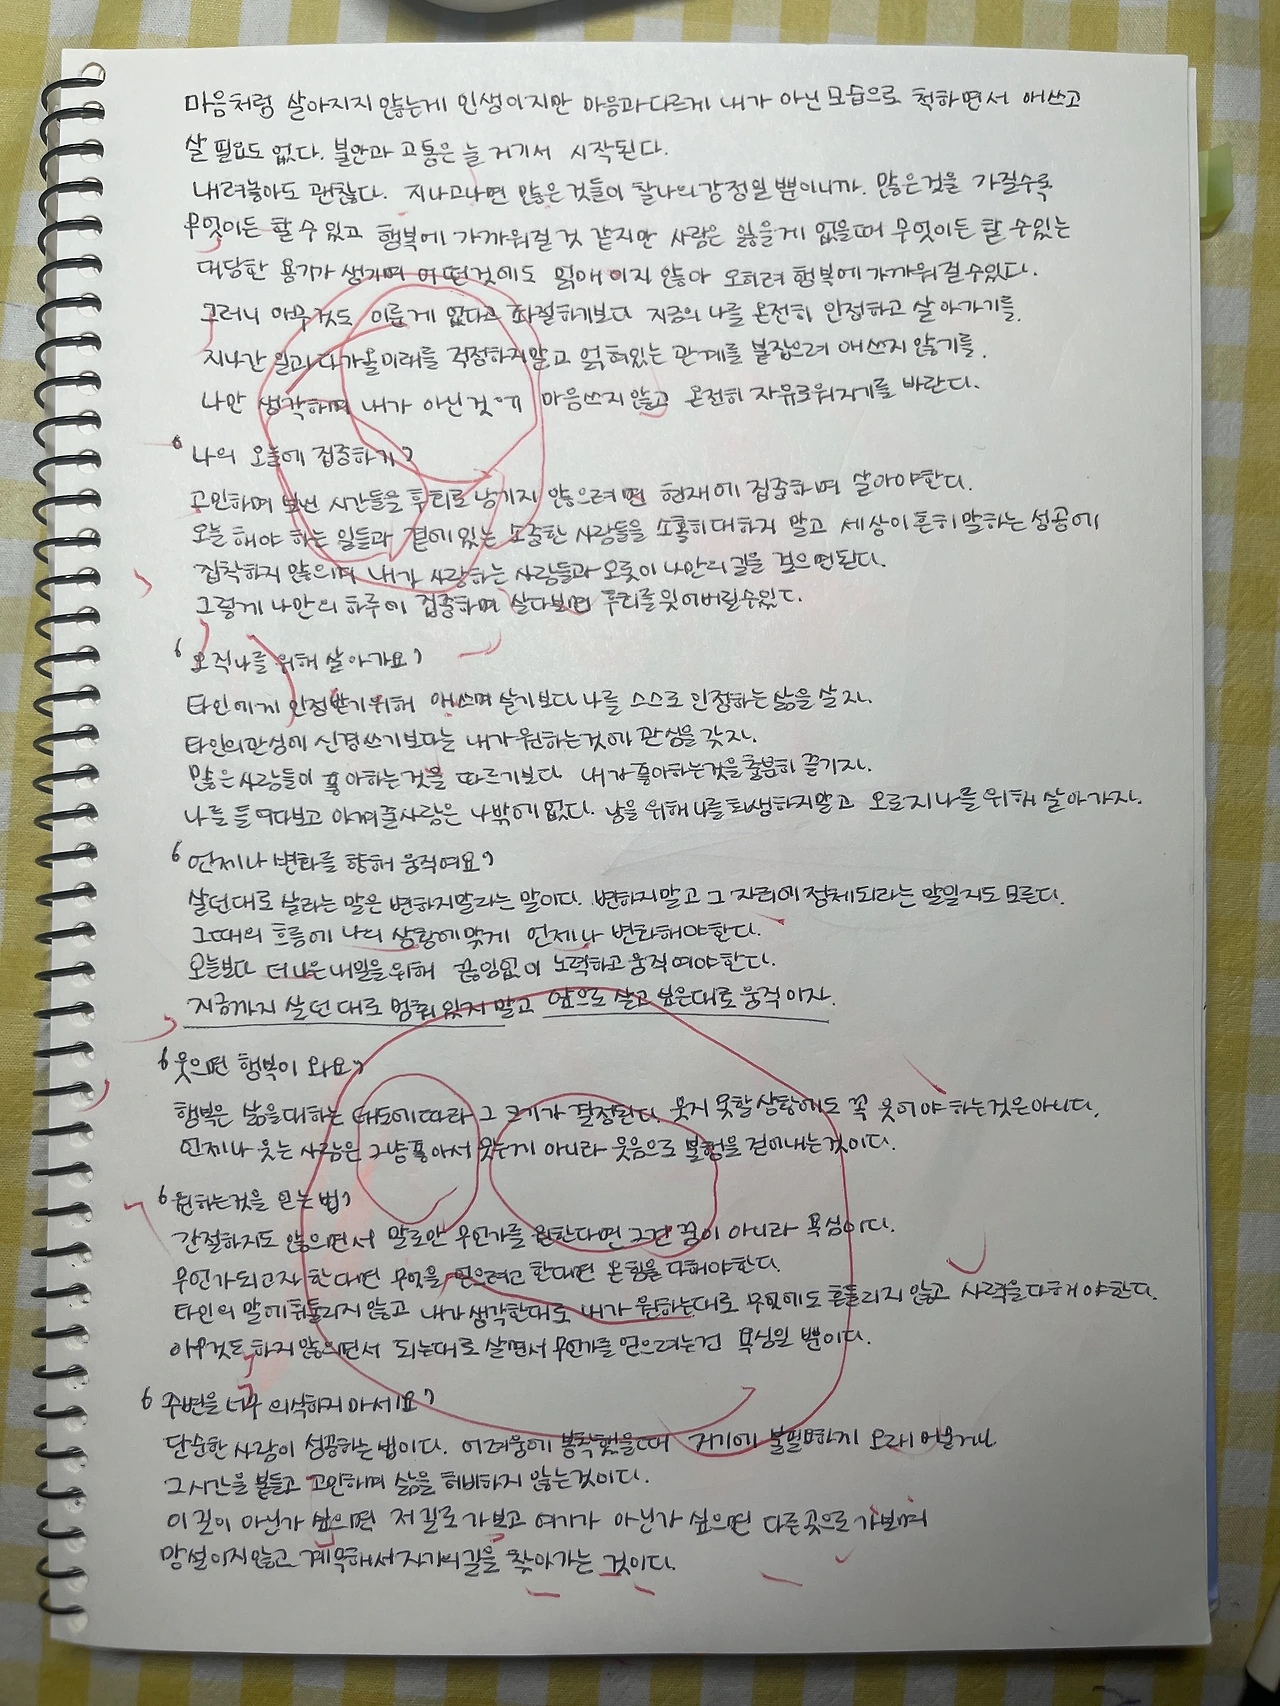 마음처럼 살아지지 않는게 인생이지만 마음과다르게 내가 아닌 모습으로 척하면서 애쓰고
살 필요도 없다. 불안과 고통은 늘 거기서 시작된다.
내려놓아도 괜찮다. 지나고나면 많은 것들이 찰나의감정일 뿐이니까. 많은것을 가질수록
무엇이든 할 수 있고 행복에 가까워질 것 같지만 사람은 잃을게 없을때 무엇이든 할 수있는
대담한 용기가 생기며 어떤것에도 얽매이지 않아 오히려 행복에가까워질 수있다.
그러니 아무것도 이룬게 없다고 좌절하기보다 지금의 나를 온전히 인정하고 살아가기를.
지나간 일과 다가올미래를 걱정하지말고 얽혀있는 관계를 붙잡으려 애쓰지 않기를.
나만 생각하며 내가 아닌것에 마음쓰지않고 온전히 자유로워지기를 바란다.
'나의 오늘에 집중하기'
고민하며 보낸 시간들을 후회로 남기지 않으려면 현재에 집중하며 살아야한다.
오늘 해야 하는 일들과 곁에있는 소중한 사람들을 소홀히대하지 말고 세상이 흔히말하는 성공에
집착하지 않으며 내가 사랑하는 사람들과 오롯이 나만의길을 걸으면된다.
그렇게 나만의 하루에 집중하며 살다보면 후회를잊어버릴수있다.
'오직나를 위해 살아가요'
타인에게 인정받기위해 애쓰며 살기보다 나를 스스로 인정하는 삶을 살자.
타인의관심에 신경쓰기보다는 내가원하는것에 관심을 갖자.
많은사람들이 좋아하는것을 따르기보다 내가좋아하는것을충분히 즐기자.
나를 들여다보고 아껴줄사람은 나밖에없다. 남을 위해나를희생하지말고 오로지나를위해 살아가자.
'언제나 변화를 향해 움직여요'
살던대로 살라는 말은 변하지말라는 말이다. 변하지말고 그 자리에정체되라는 말일지도 모른다.
그때의 흐름에 나의 상황에맞게 언제나 변화해야한다.
오늘보다 더나은내일을위해 끊임없이 노력하고움직여야한다.
지금까지 살던 대로 멈춰있지 말고 앞으로 살고 싶은대로 움직이자.
'웃으면 행복이 와요'
행복은 삶을대하는 태도에따라 그 크기가 결정된다. 웃지 못할상황에도 꼭 웃어야 하는것은아니다.
언제나 웃는 사람은 그냥좋아서 웃는게 아니라 웃음으로 불행을 걷어내는것이다.
'원하는것을 얻는법'
간절하지도 않으면서 말로만 무언가를 원한다면 그건 꿈이 아니라 욕심이다.
무언가되고자 한다면 무엇을 얻으려고 한다면 온힘을 다해야한다.
타인의 말에휘둘리지않고 내가생각한대로 내가 원하는대로 무엇에도 흔들리지 않고 사력을다해야한다.
아무것도 하지 않으면서 되는대로 살면서 무언가를 얻으려는건 욕심일 뿐이다.
'주변을 너무 의식하지마세요'
단순한 사람이 성공하는법이다. 어려움에 봉착했을때 거기에 불필요하게 오래 머물거나
그시간을 붙들고 고민하며 삶을 허비하지 않는것이다.
이길이 아닌가 싶으면 저 길로가보고 여기가 아닌가 싶으면 다른곳으로 가보며
망설이지않고 계속해서자기의길을 찾아가는 것이다.